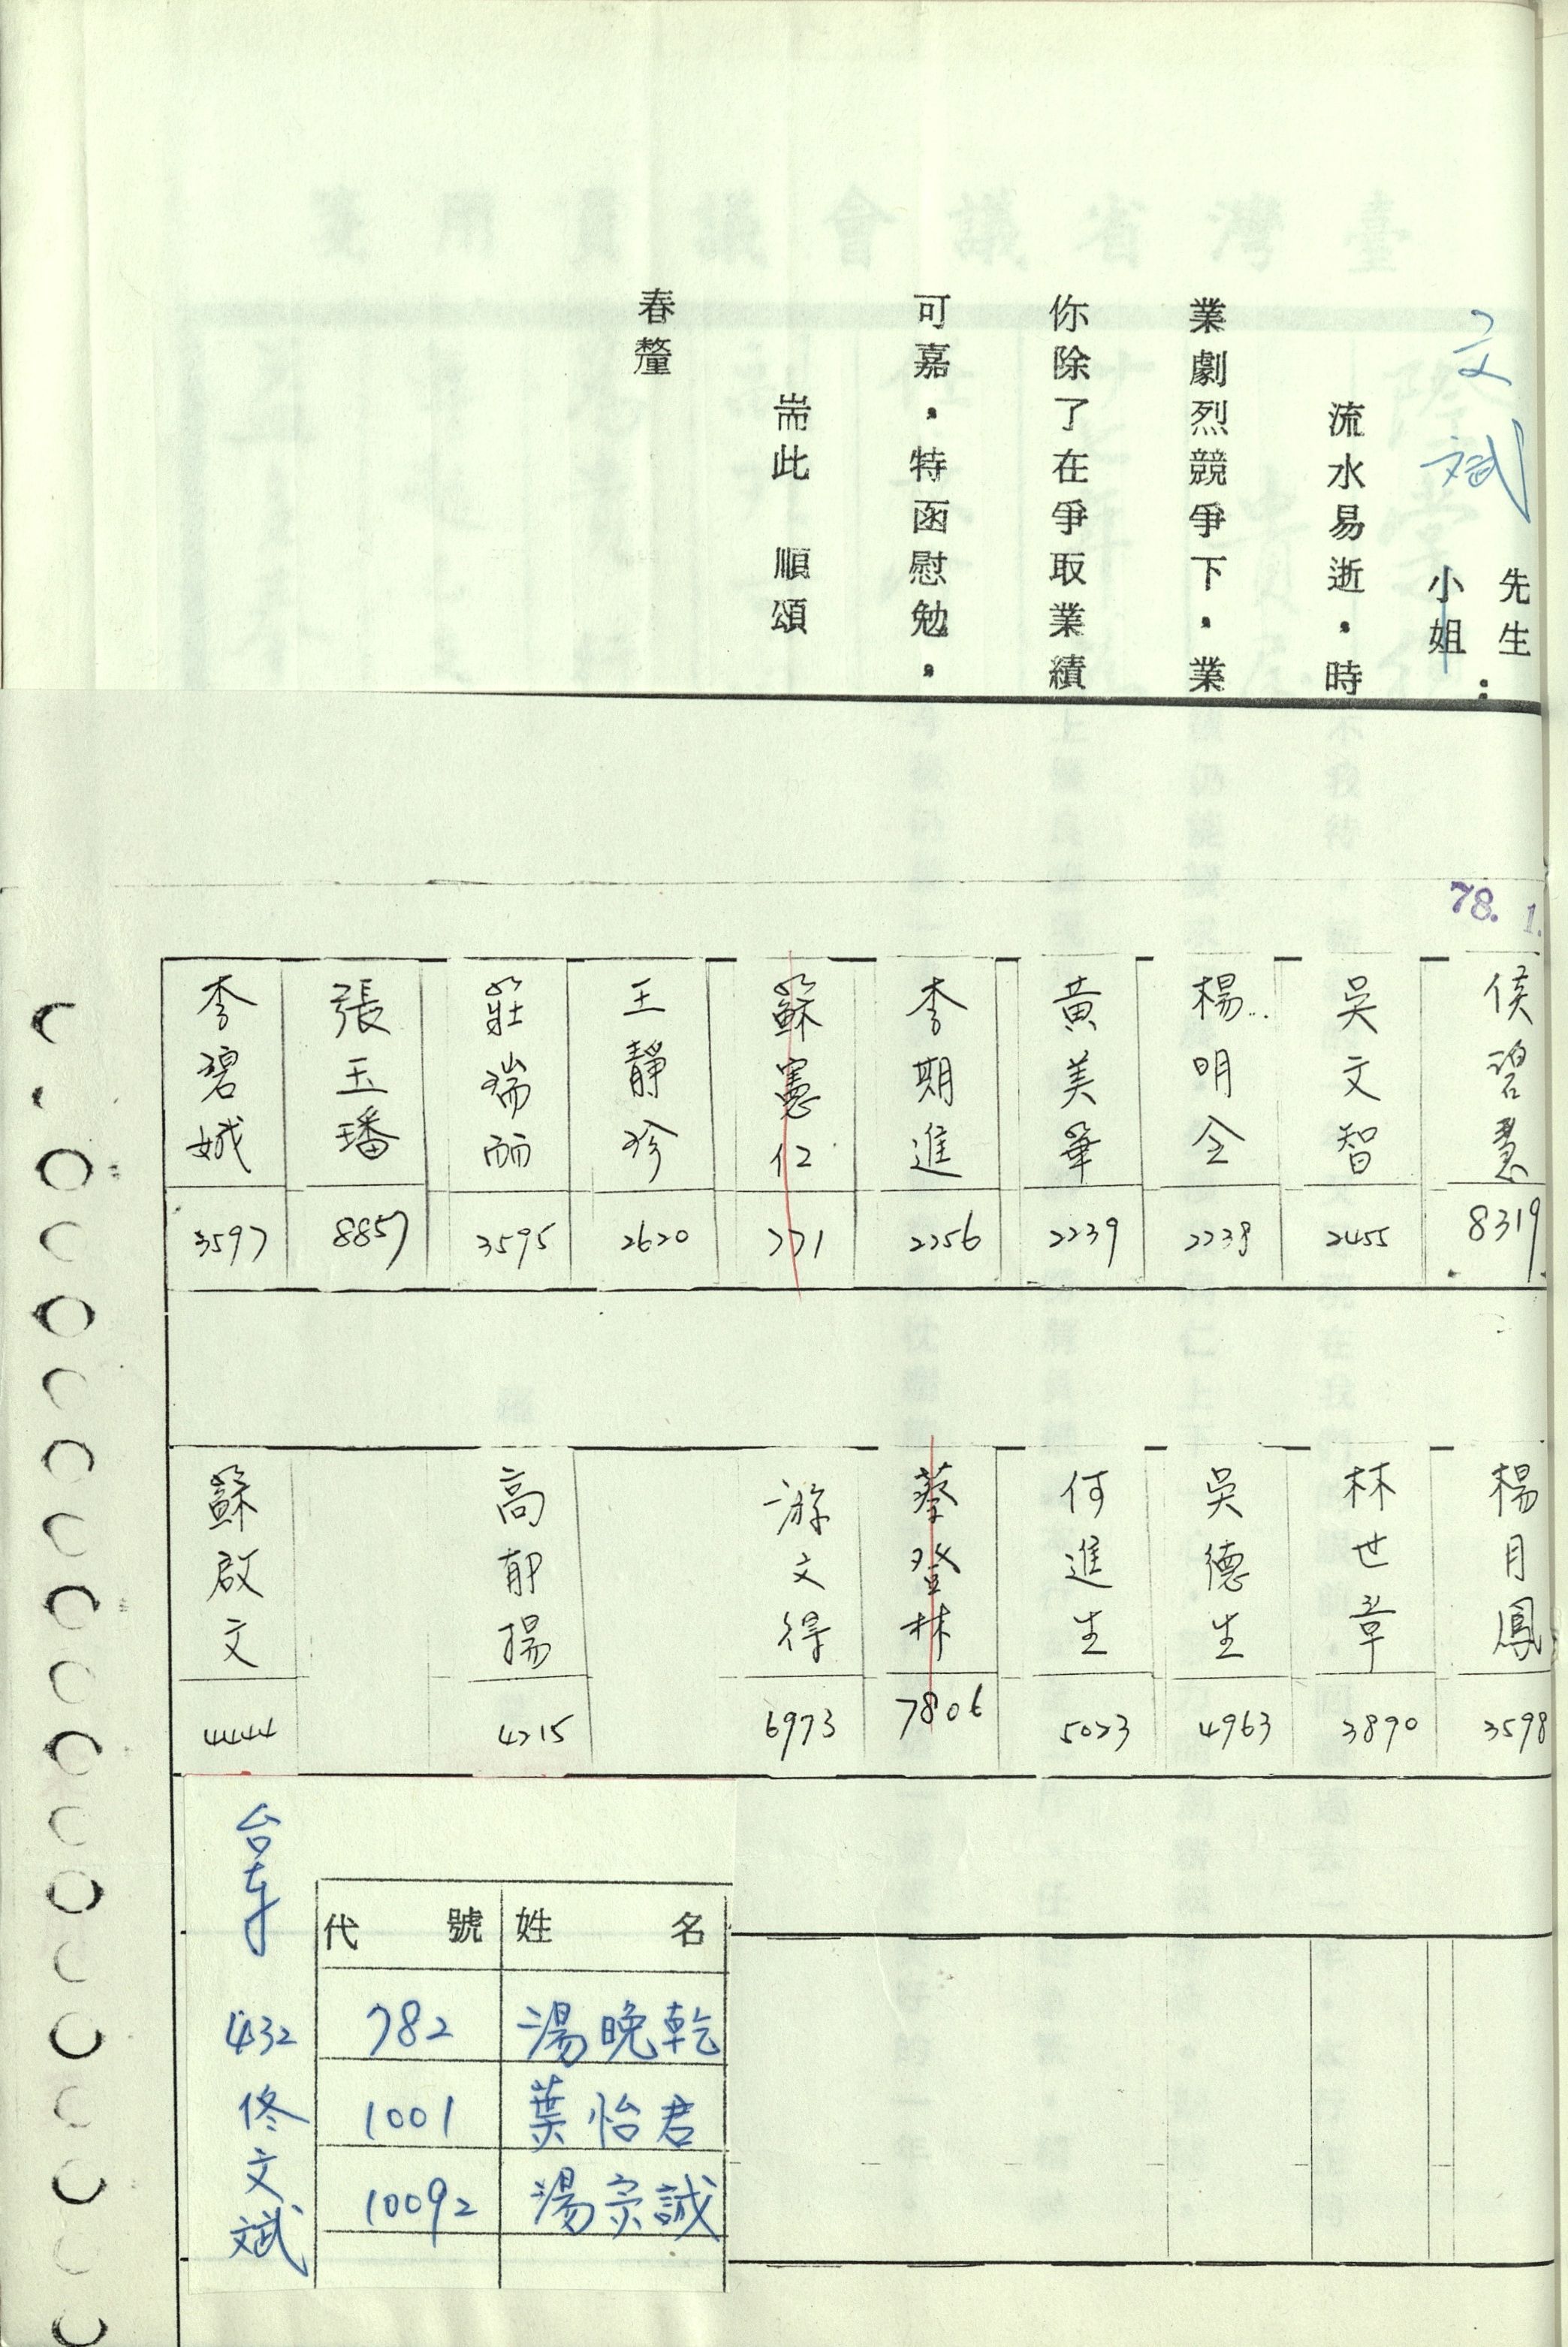 文斌
先生
小姐
:
流水易逝，時
業劇烈競爭下，業
你除了在爭取業績
可嘉，特函慰勉，
耑此 順頌
春釐
78. 1.
侯碧慧 8319
吳文智 2455
楊明全 2238
黃美華 2239
李期進 2256
蘇憲仁 221
王靜珍 2620
莊瑞 3595
張玉璠 8857
李碧娥 3597
楊月鳳 3598
林世章 3890
吳德生 4963
何進生 5023
蔡登林 7806
游文得 6973
高郁揚 4215
蘇啟文 4444
台東
432
佟文斌
代號 姓名
782 湯晚乾
1001 葉怡君
10092 湯宗誠